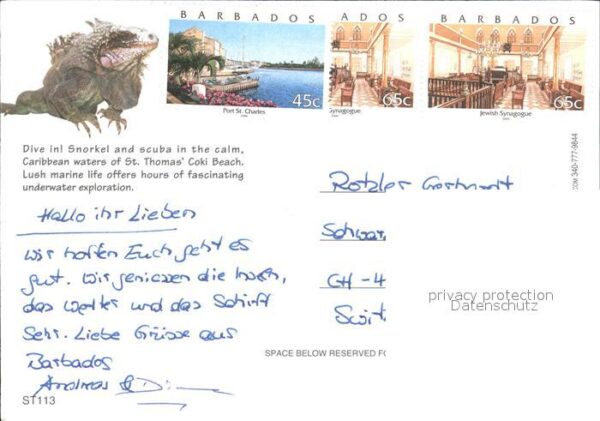 BARBADOS
BARBADOS
BARBADOS
45c
65c
65c
Port St. Charles
Synagogue
Jewish Synagogue
Dive in! Snorkel and scuba in the calm,
Caribbean waters of St. Thomas' Coki Beach.
Lush marine life offers hours of fascinating
underwater exploration.
COM 340-777-9844
Hallo ihr Lieben
Wir hoffen Euch geht es
gut. Wir geniessen die Inseln,
das Wetter und das Schiff
Sehr. Liebe Grüsse aus
Barbados
Andreas &
Rotzler
Schwar
CH-4
Swit
privacy protection
Datenschutz
SPACE BELOW RESERVED FO
ST113